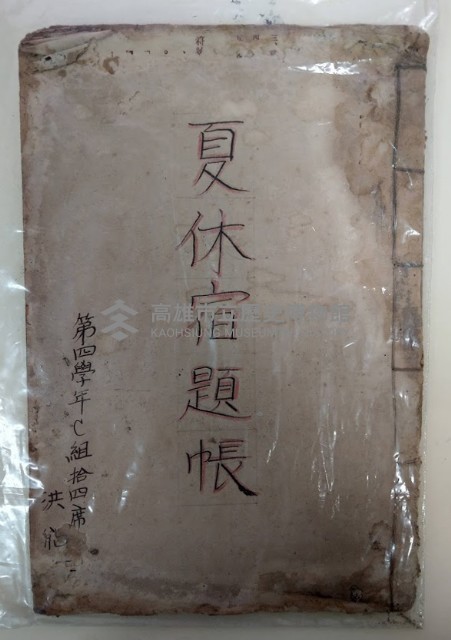 夏休宿題帳
第四學年C組拾四席
洪
高雄市立歷史博物館
KAOHSIUNG MUSEUM